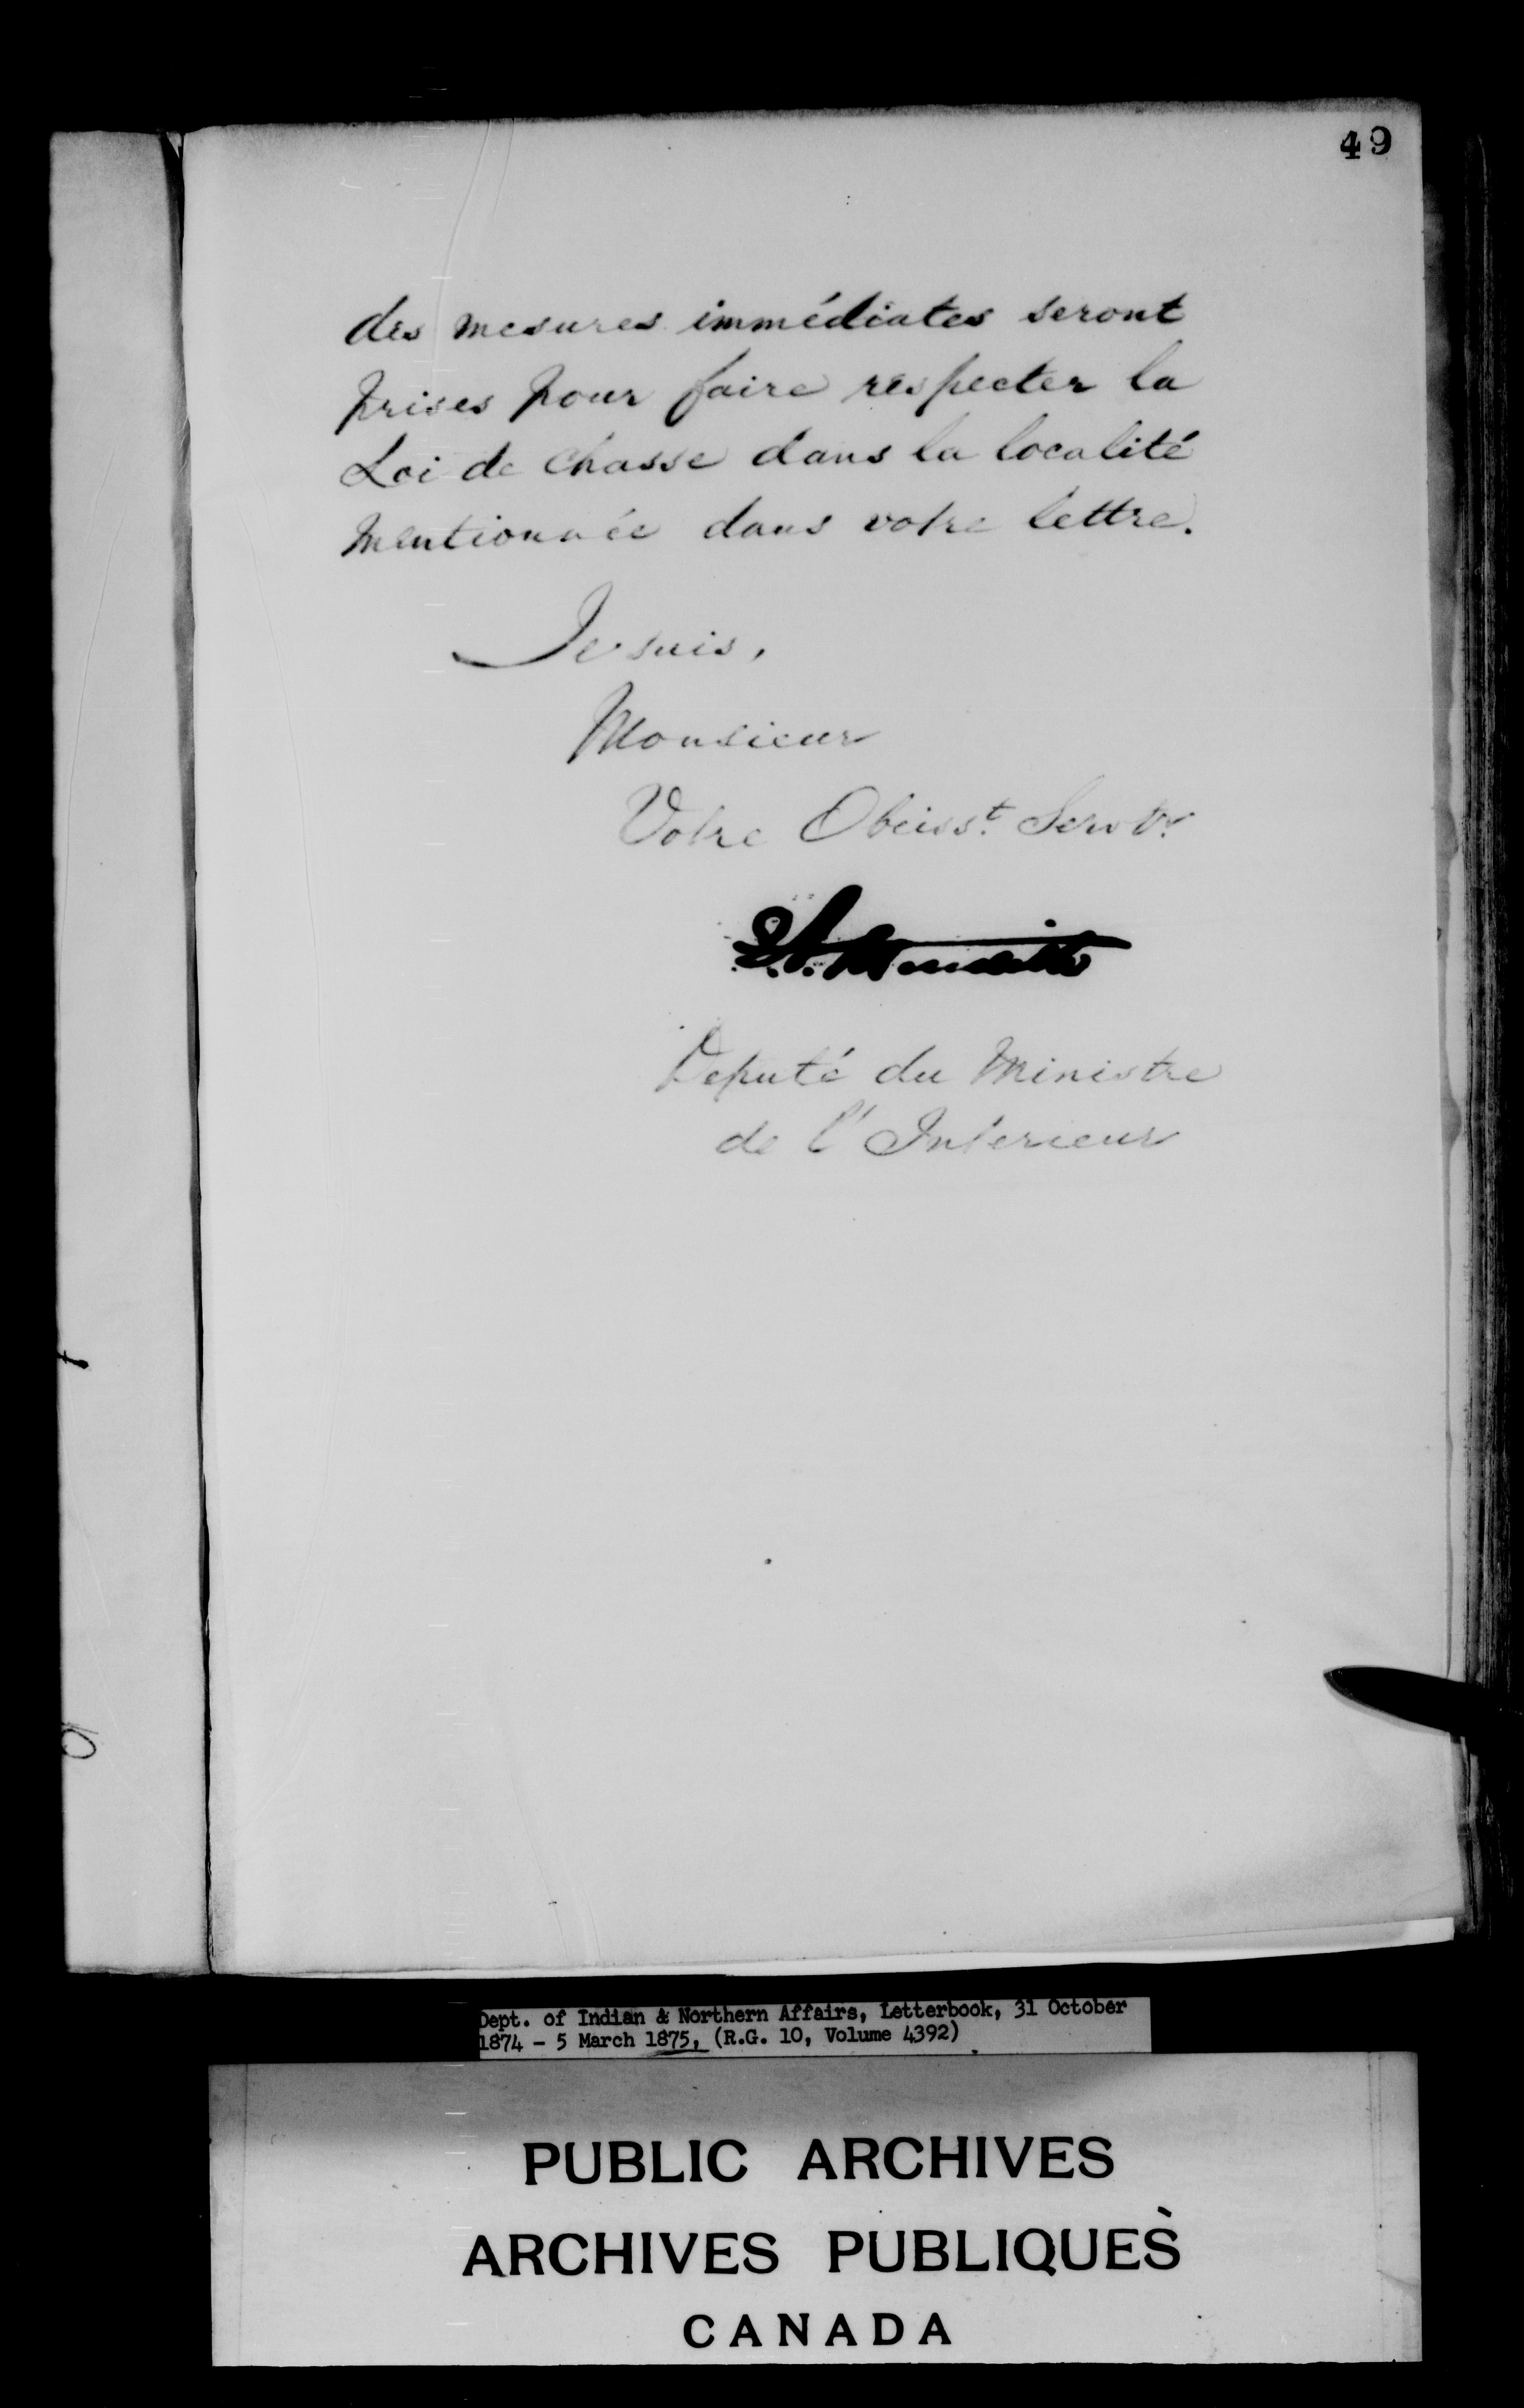 49
des mesures immédiates seront
prises pour faire respecter la
Loi de Chasse dans la localité
mentionnée dans votre lettre.
Je suis,
Monsieur
Votre Obeisst. Servtr
E. A. Meredith
Deputé du Ministre
de l'Interieur
Dept. of Indian & Northern Affairs, Letterbook, 31 October
1874 - 5 March 1875, (R.G. 10, Volume 4392)
PUBLIC ARCHIVES
ARCHIVES PUBLIQUES
CANADA